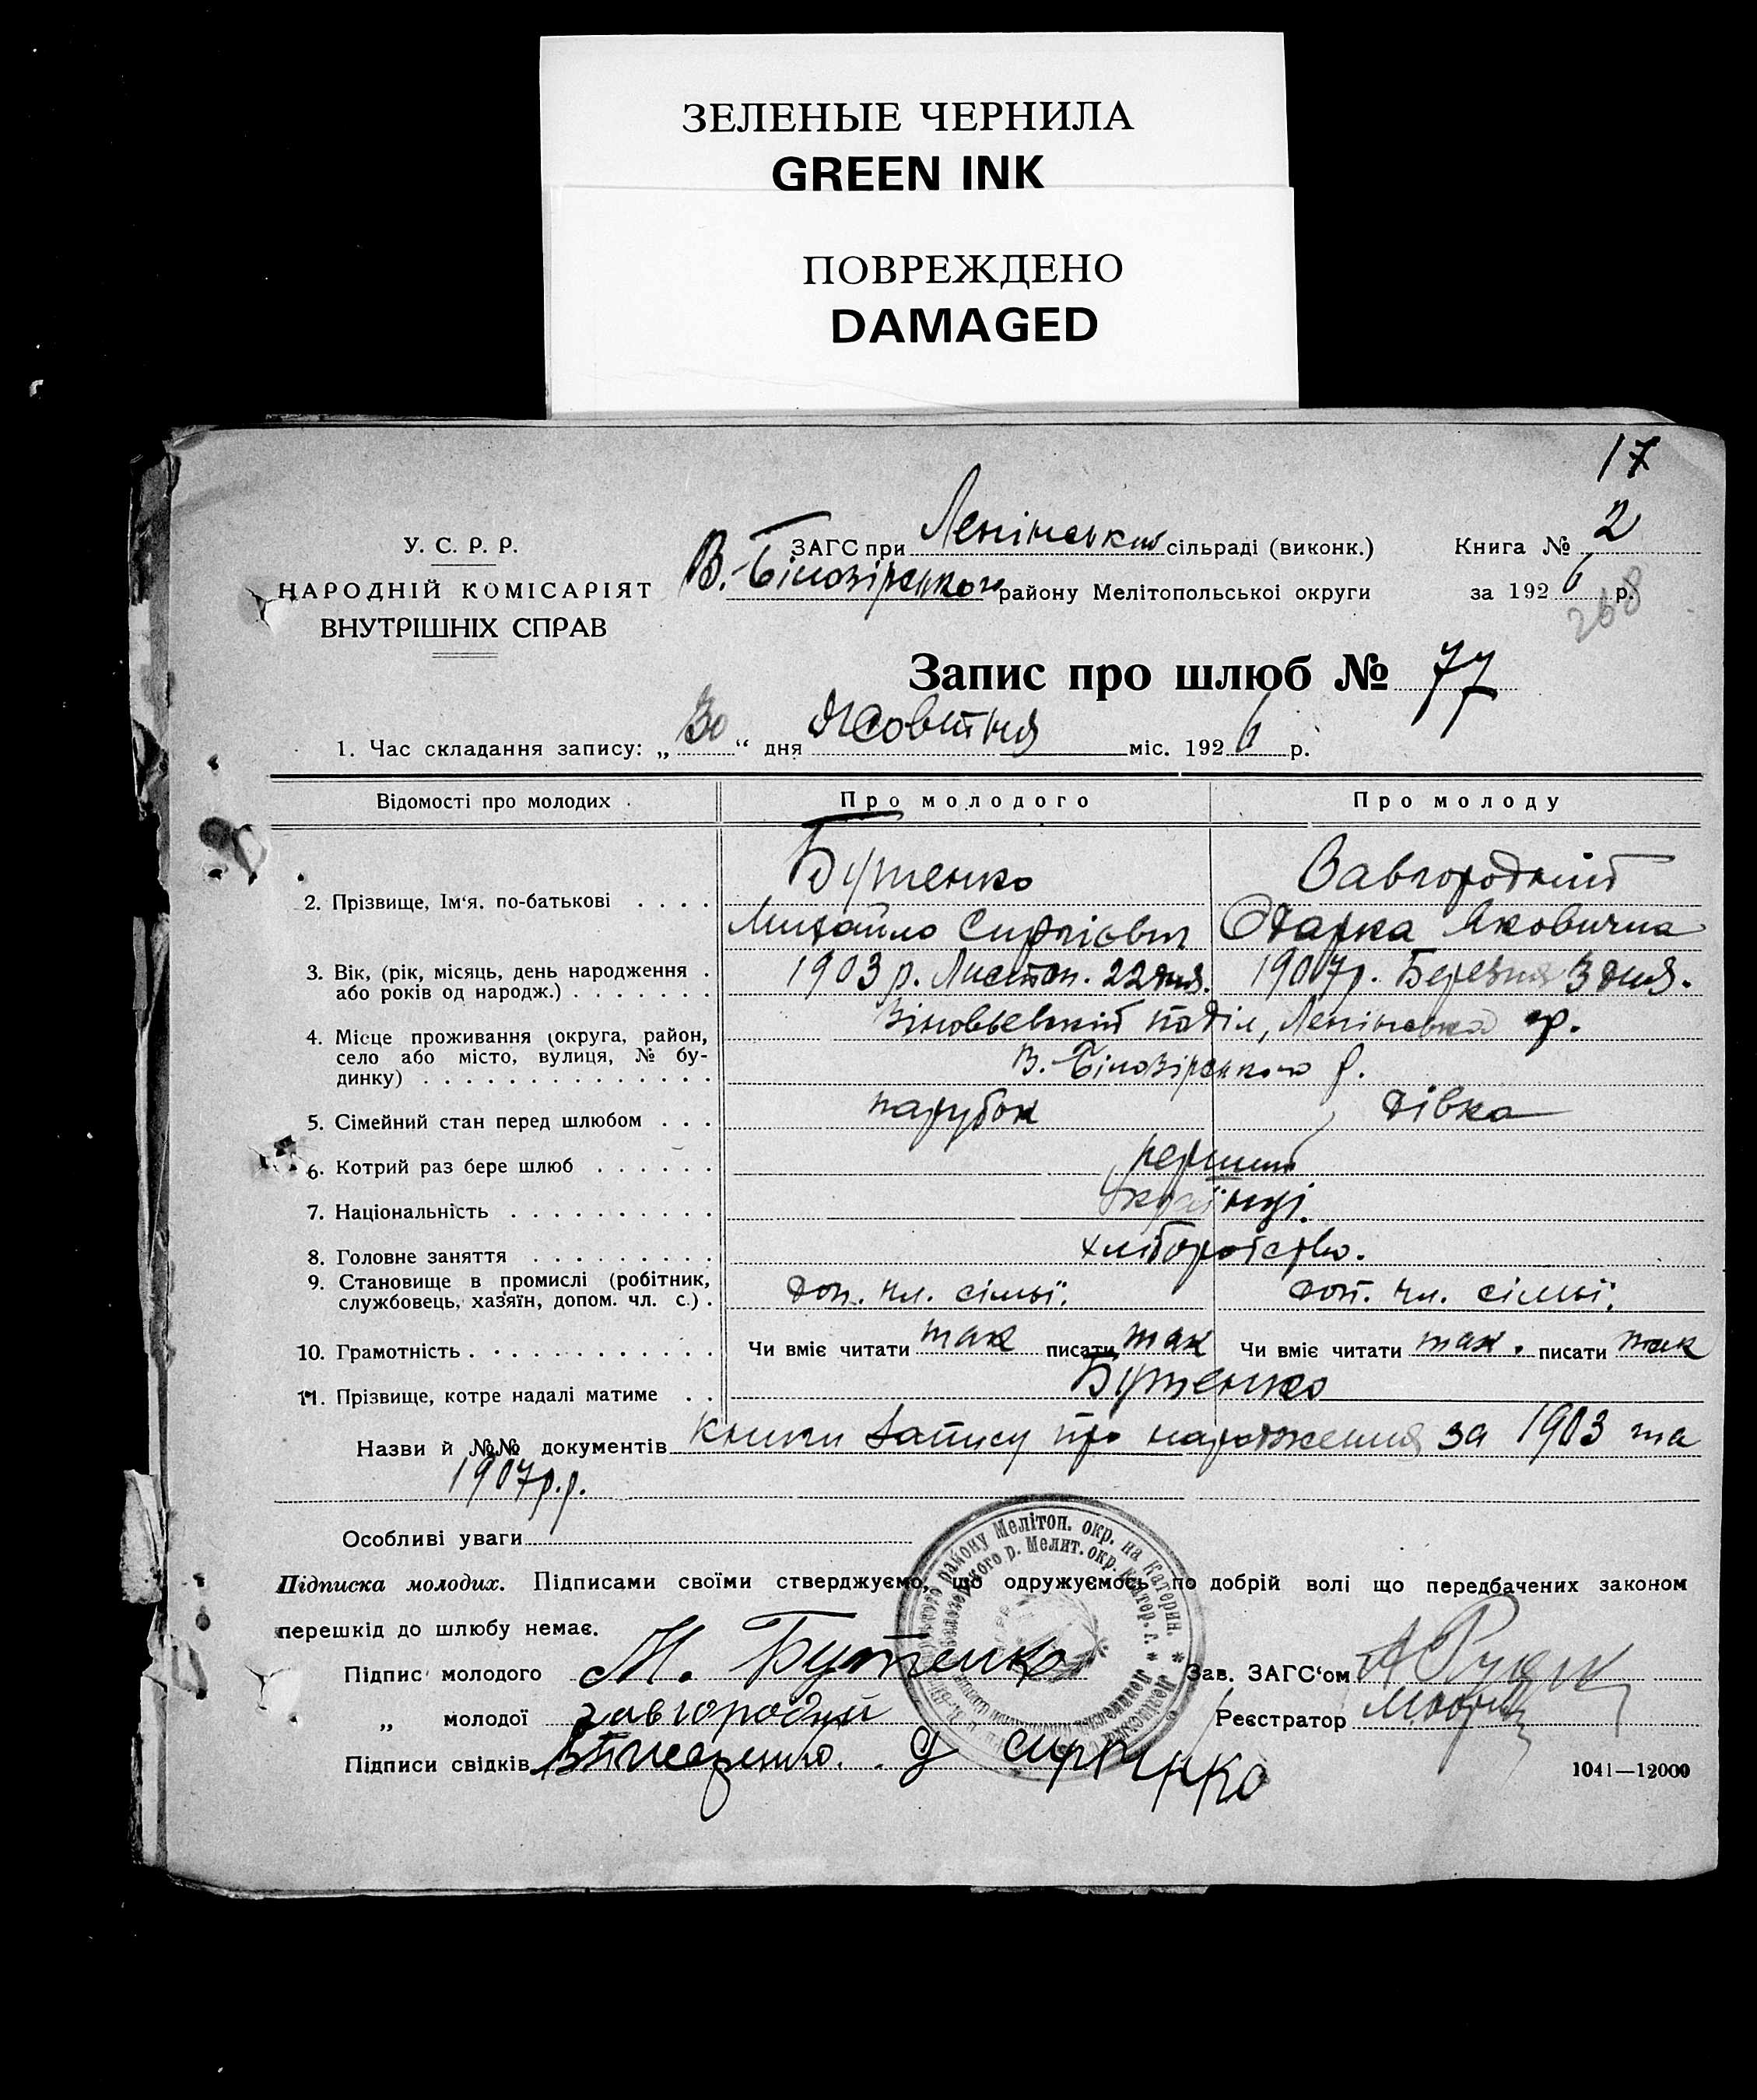 ЗЕЛЕНЫЕ ЧЕРНИЛА
GREEN INK
ПОВРЕЖДЕНО
DAMAGED
17
У. С. Р. Р.
НАРОДНІЙ КОМІСАРІЯТ
ВНУТРІШНІХ СПРАВ
ЗАГС при Ленінський сільраді (виконк.)
В.-Білозірського району Мелітопольської округи
Книга № 2
за 1926 р.
268
Запис про шлюб № 77
1. Час складання запису: „30“ дня Жовтня міс. 1926 р.
Відомості про молодих Про молодого Про молоду
2. Прізвище, Ім‘я, по-батькові . . . . Бутенко Завгородній
Михайло Сиргієвич Одарка Яковична
3. Вік, (рік, місяць, день народження . 1903 р. Листоп. 22 дня. 1907 р. Березня 3 дня.
або років од народж.) . . . . . . .
4. Місце проживання (округа, район, Зіновьевский поділ, Ленінська
село або місто, вулиця, № бу- В.-Білозірського р.
динку) . . . . . . . . . . . . . .
5. Сімейний стан перед шлюбом . . . парубок дівка
6. Котрий раз бере шлюб . . . . . . перший
7. Національність . . . . . . . . . . Українці.
8. Головне заняття . . . . . . . . . хліборобство.
9. Становище в промислі (робітник, доп. чл. сімьї. доп. чл. сімьї.
службовець, хазяїн, допом. чл. с.) .
10. Грамотність . . . . . . . . . . . . Чи вміє читати так писати так Чи вміє читати так. писати так
11. Прізвище, котре надалі матиме . . Бутенко
Назви й №№ документів книги запису про народження за 1903 та
1907 р.р.
Особливі уваги
Підписка молодих. Підписами своїми стверджуємо, що одружуємось по добрій волі що передбачених законом
перешкід до шлюбу немає.
Підпис молодого М. Бутенко Зав. ЗАГС‘ом
„ молодої завгородній Реєстратор
Підписи свідків
1041—12000
району Мелітоп. окр. на Катерин.
р. Мелит. окр. Катер. г.